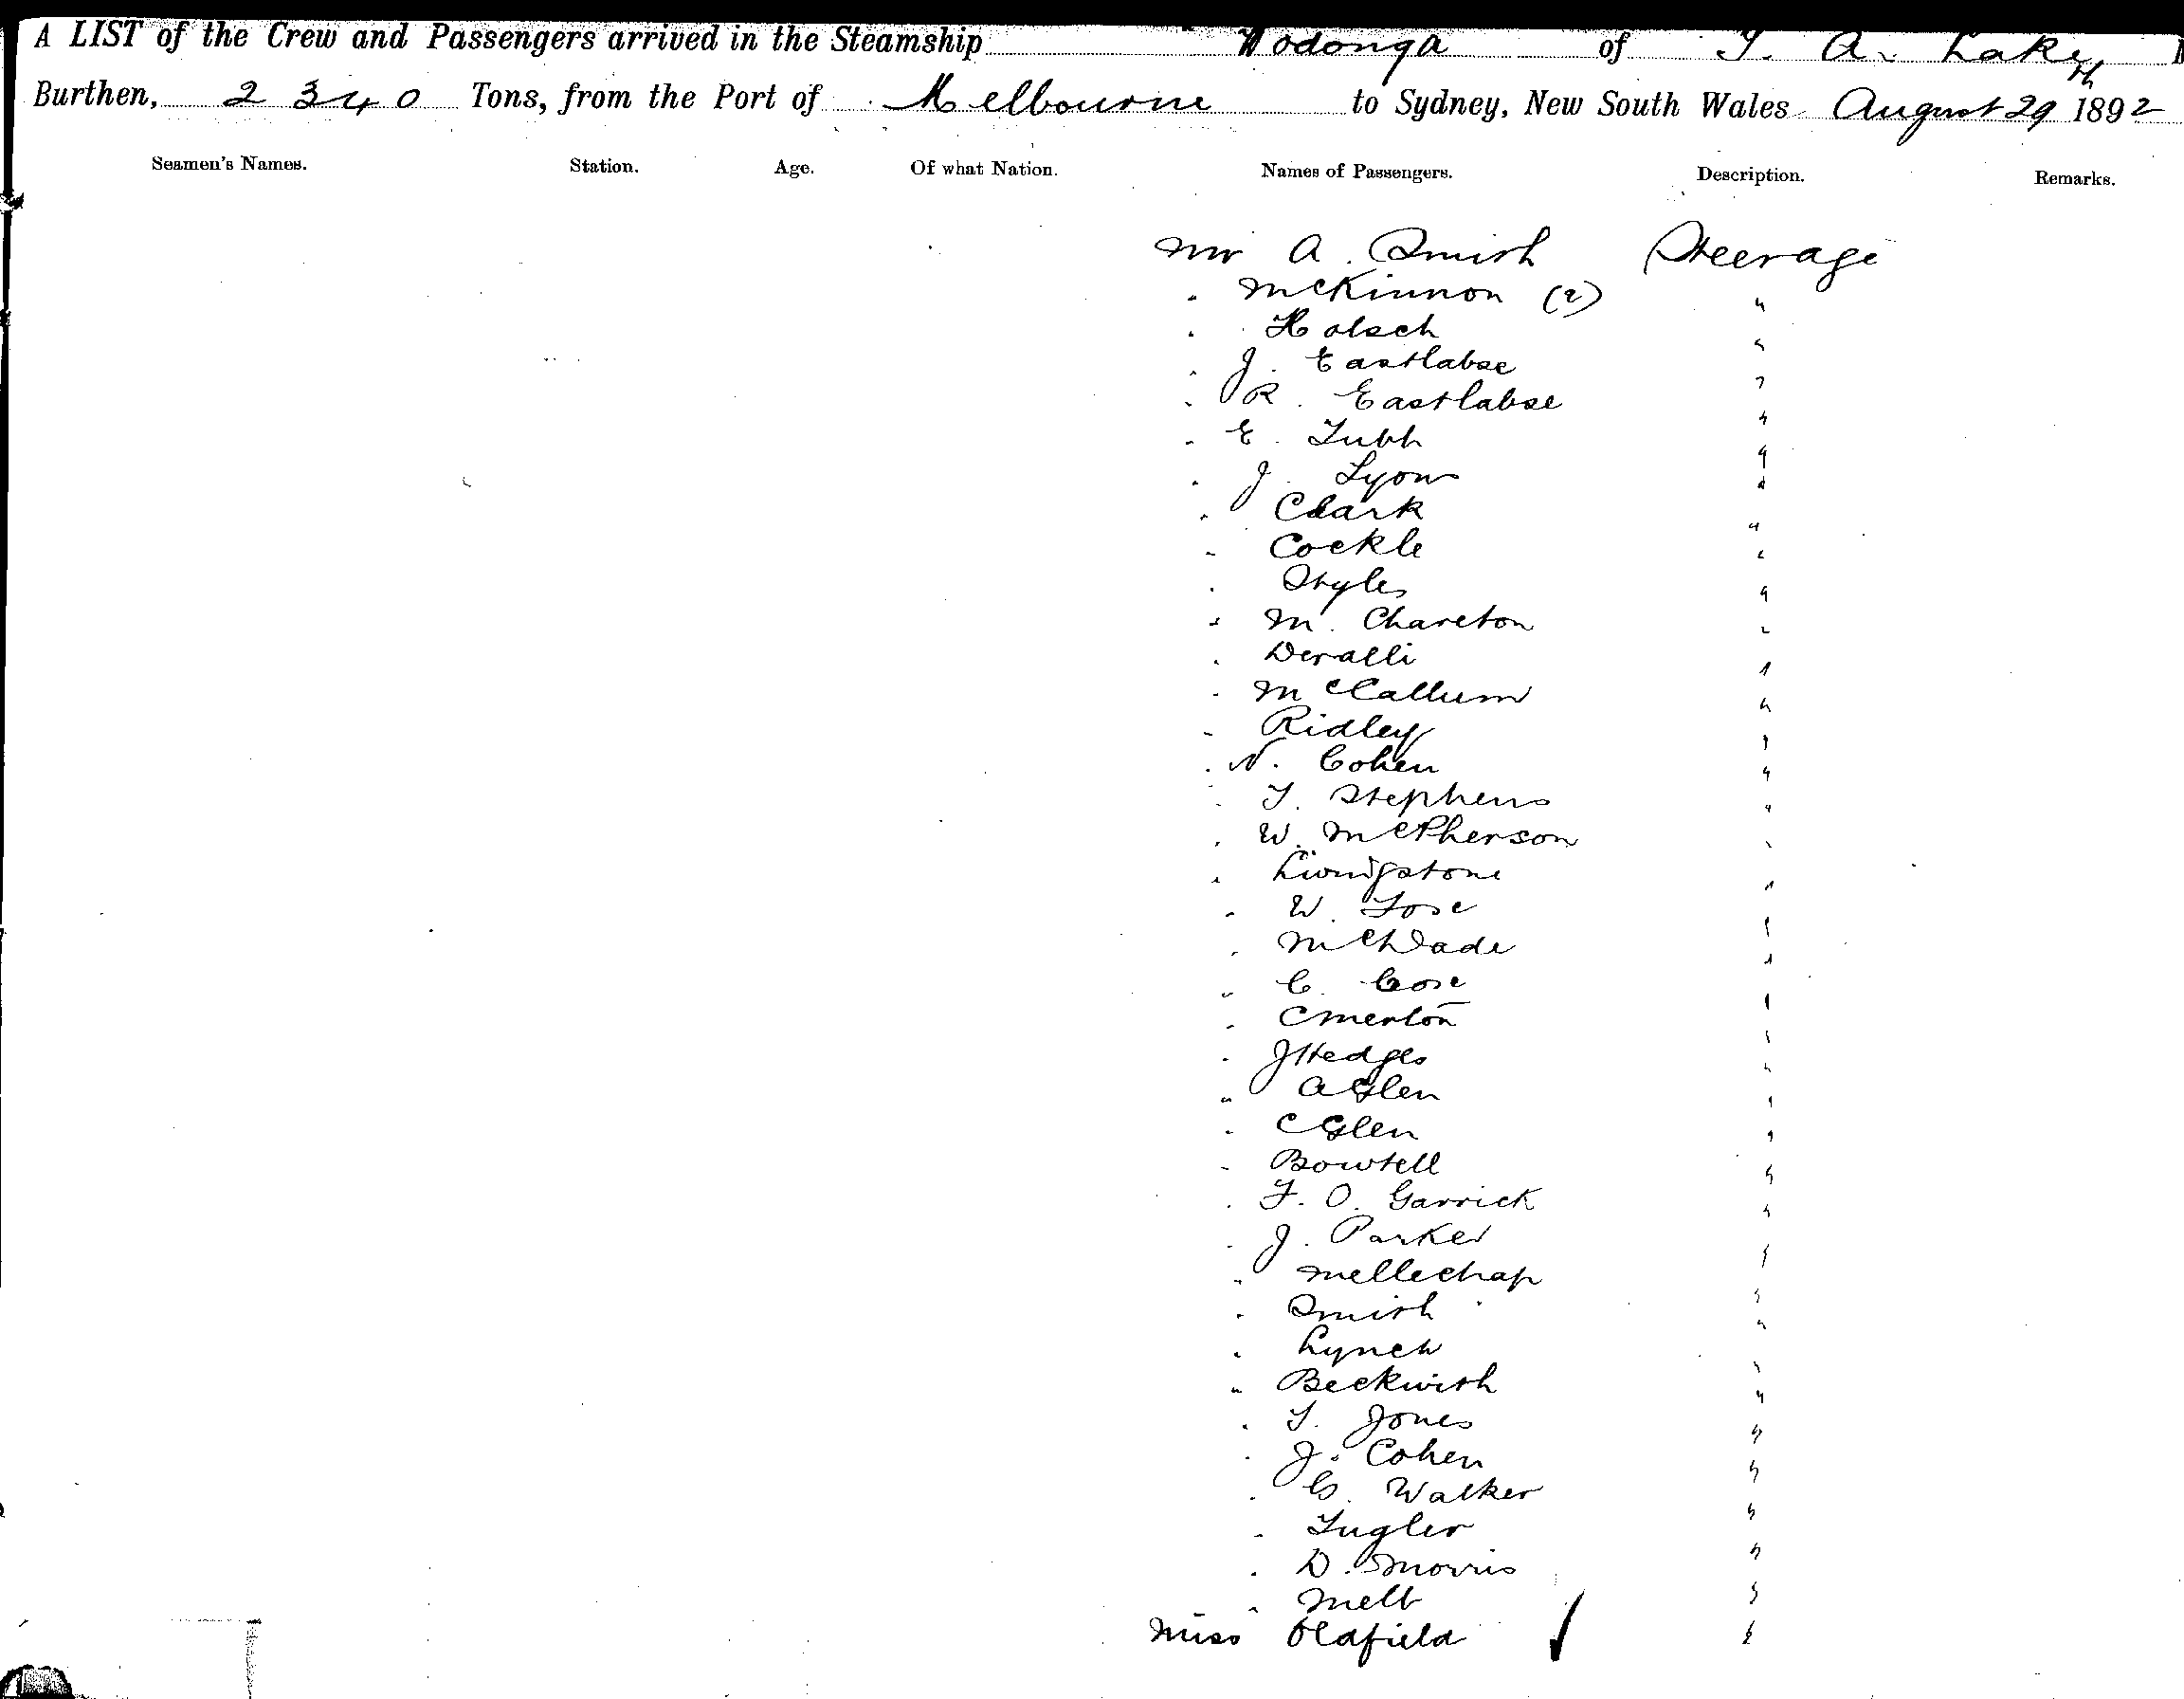 A LIST of the Crew and Passengers arrived in the Steamship Wodonga of T. A. Lake
Burthen, 2340 Tons, from the Port of Melbourne to Sydney, New South Wales August 29th 1892
Seamen's Names. Station. Age. Of what Nation. Names of Passengers. Description. Remarks.
Mr A. Smith Steerage
" McKinnon (2) "
" Holsch "
" J. Eastlabse "
" R. Eastlabse "
" E. Tubb "
" J. Lyons "
" Clark "
" Cockle "
" Styles "
" M. Chareton "
" Deralli "
" McCallum "
" Ridley "
" N. Cohen "
" T. Stephens "
" W. McPherson "
" Livingstone "
" W. "
" McDade "
" C. "
" Emerton "
" J Hedges "
" A Glen "
" C Glen "
" Bowtell "
" F. O. Garrick "
" J. Parker "
" Mellechap "
" Smith "
" Lynch "
" Beckwith "
" T. Jones "
" J. Cohen "
" G. Walker "
" Tugler "
" D. Morris "
" Melb "
Miss Oldfield "